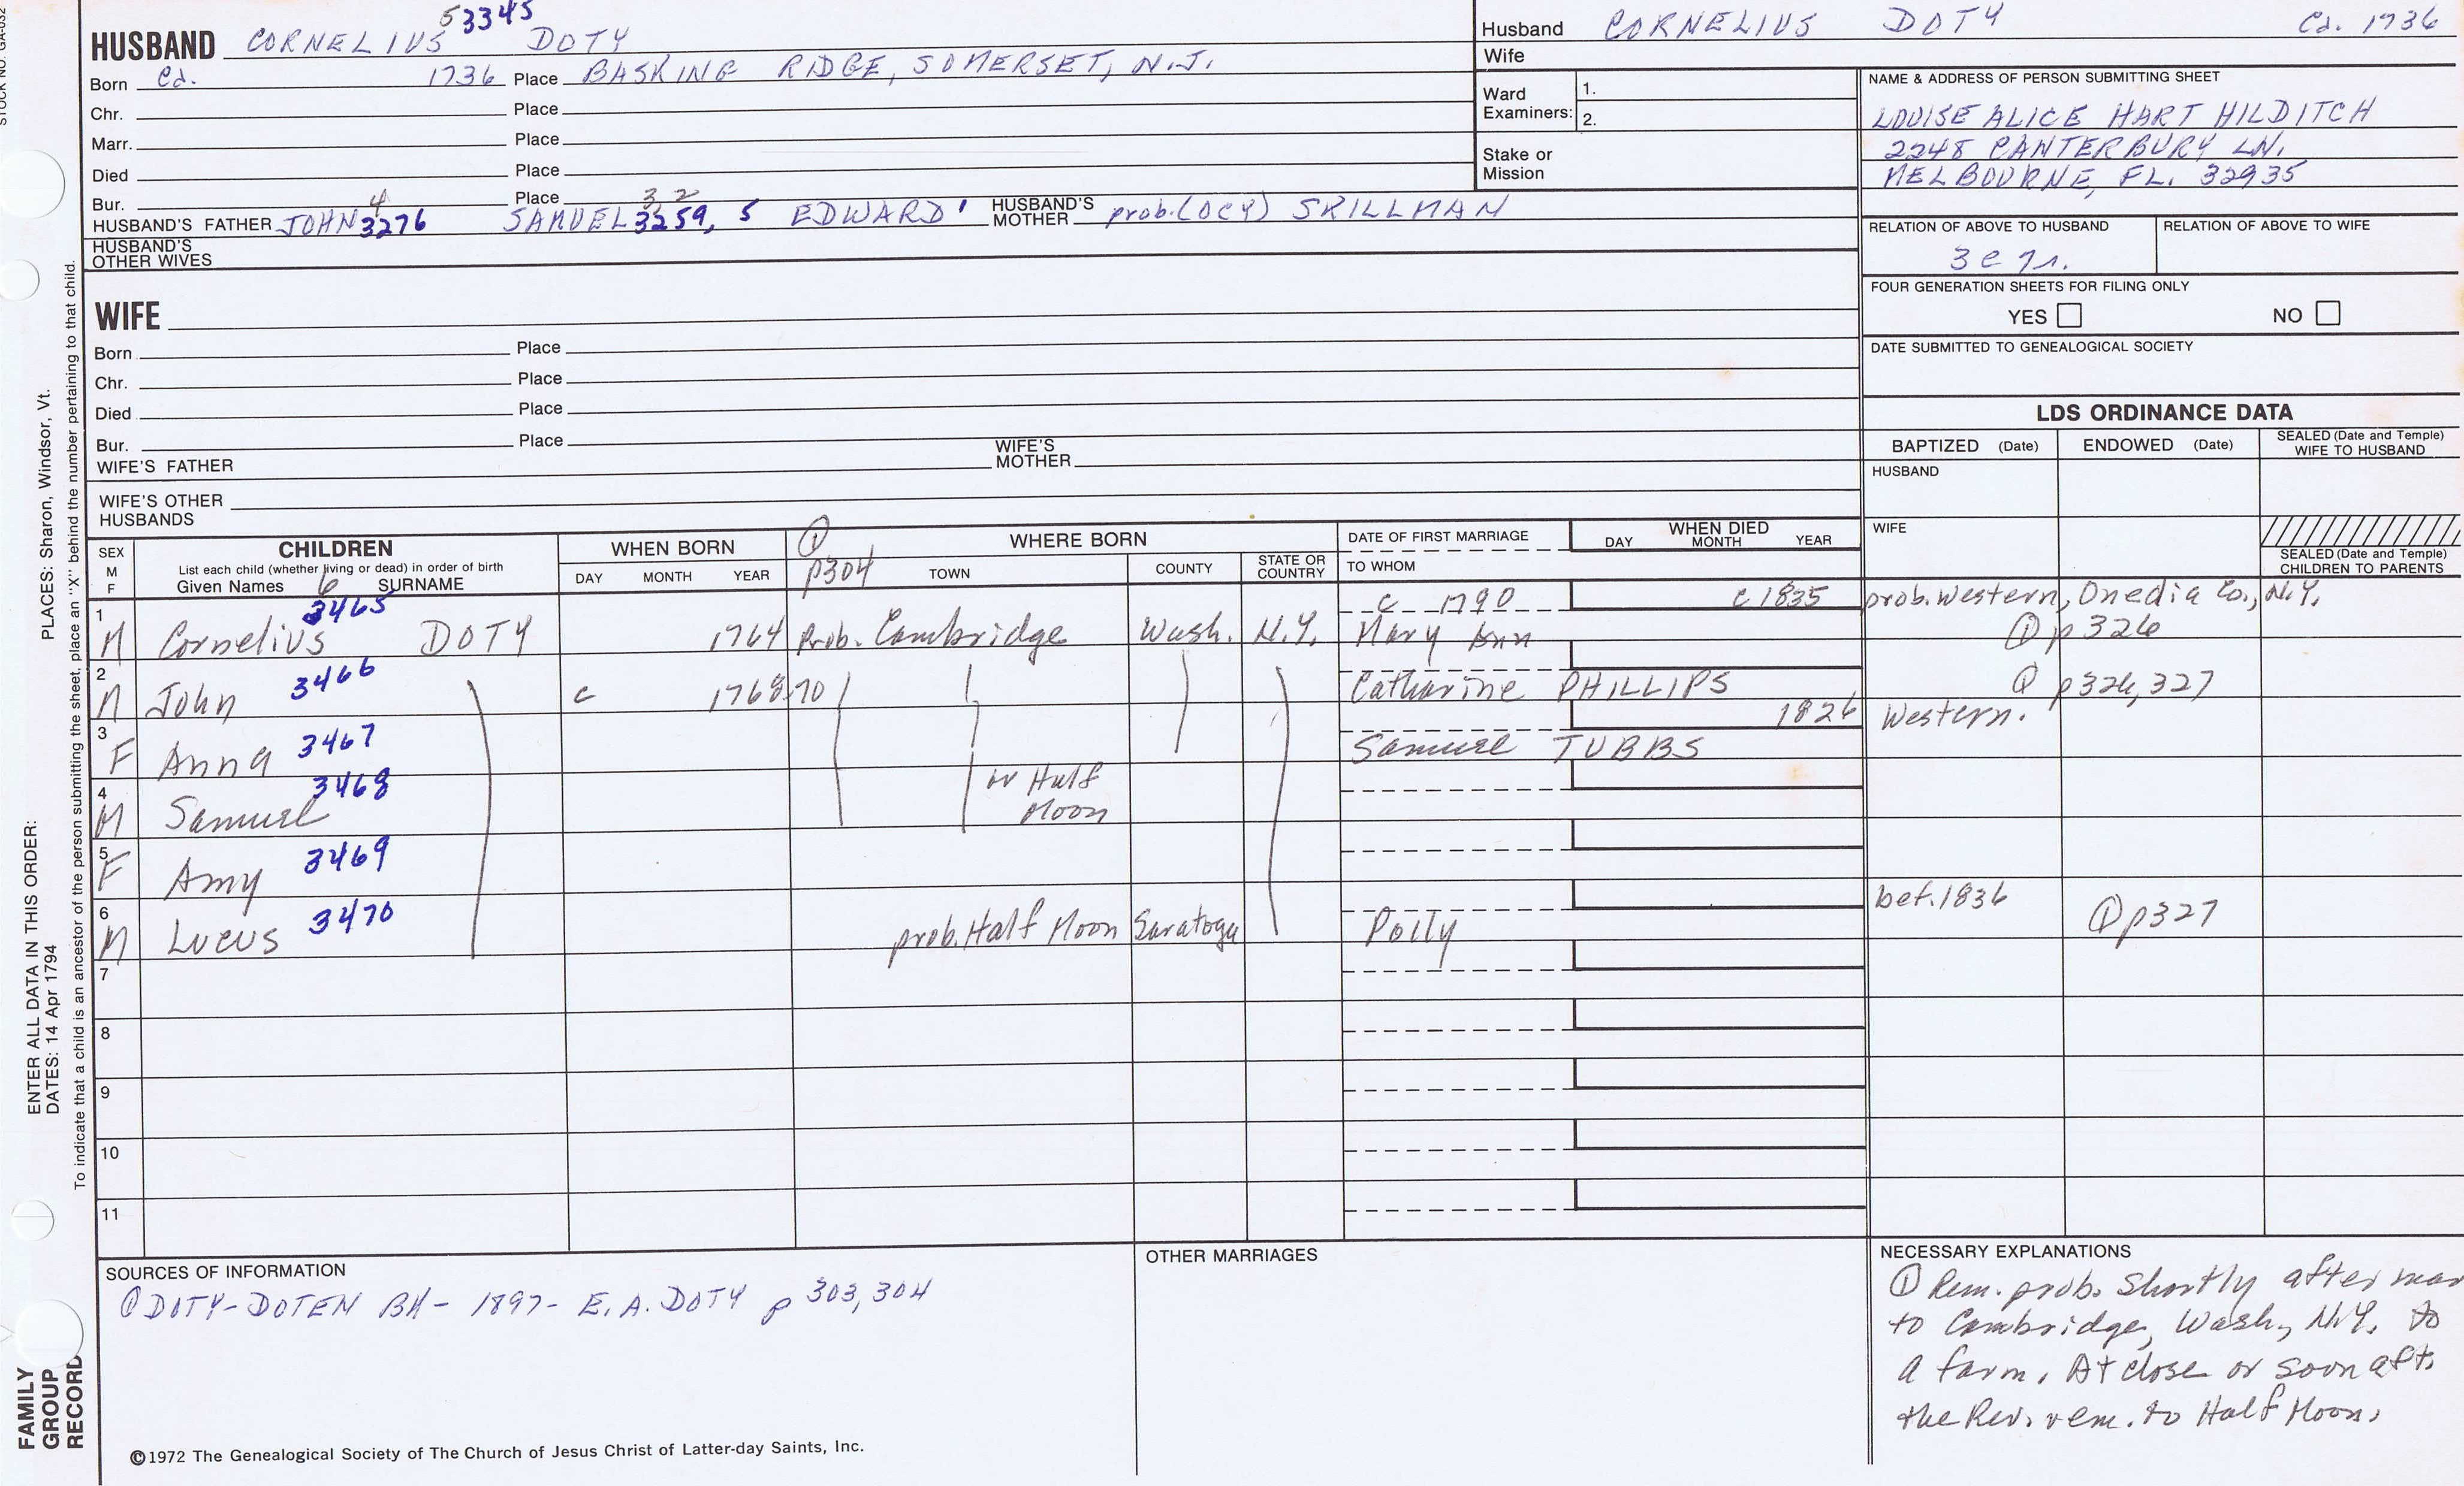 STOCK NO. GA-032
HUSBAND CORNELIUS 5 3345 DOTY
Born Ca. 1736 Place BASKING RIDGE, SOMERSET, N.J.
Chr. Place
Marr. Place
Died Place
Bur. Place
HUSBAND'S FATHER JOHN 4 3276 SAMUEL 3 2 3259, 5 EDWARD ' HUSBAND'S MOTHER prob. (OCY) SKILLMAN
HUSBAND'S OTHER WIVES
Husband CORNELIUS DOTY Ca. 1736
Wife
Ward Examiners: 1. 2.
Stake or Mission
NAME & ADDRESS OF PERSON SUBMITTING SHEET
LOUISE ALICE HART HILDITCH
2248 CANTERBURY LN.
MELBOURNE, FL. 32935
RELATION OF ABOVE TO HUSBAND RELATION OF ABOVE TO WIFE
3 c 7r.
FOUR GENERATION SHEETS FOR FILING ONLY
YES NO
DATE SUBMITTED TO GENEALOGICAL SOCIETY
WIFE
Born Place
Chr. Place
Died Place
Bur. Place
WIFE'S FATHER WIFE'S MOTHER
WIFE'S OTHER HUSBANDS
LDS ORDINANCE DATA
BAPTIZED (Date) ENDOWED (Date) SEALED (Date and Temple) WIFE TO HUSBAND
HUSBAND
WIFE
SEALED (Date and Temple) CHILDREN TO PARENTS
SEX M F
CHILDREN
List each child (whether living or dead) in order of birth
Given Names 6 SURNAME
WHEN BORN
DAY MONTH YEAR
① p304
WHERE BORN
TOWN COUNTY STATE OR COUNTRY
DATE OF FIRST MARRIAGE
TO WHOM
WHEN DIED
DAY MONTH YEAR
1 M Cornelius 3465 DOTY 1764 Prob. Cambridge Wash. N.Y. c 1790 Mary Ann c 1835 prob. Western, Onedia Co., N.Y. ① p 326
2 M John 3466 c 1768 70 Catharine PHILLIPS ① p326, 327
3 F Anna 3467 Samuel TUBBS 1826 Western.
4 M Samuel 3468 or Half Moon
5 F Amy 3469
6 M Lucus 3470 prob. Half Moon Saratoga Polly bef. 1836 ① p327
7
8
9
10
11
SOURCES OF INFORMATION
① DOTY-DOTEN BH- 1897- E. A. DOTY p 303, 304
OTHER MARRIAGES
NECESSARY EXPLANATIONS
① Rem. prob. shortly after mar
to Cambridge, Wash, N.Y. to
a farm. At close or soon aft.
the Rev. rem. to Half Moon.
©1972 The Genealogical Society of The Church of Jesus Christ of Latter-day Saints, Inc.
FAMILY GROUP RECORD
ENTER ALL DATA IN THIS ORDER:
DATES: 14 Apr 1794 PLACES: Sharon, Windsor, Vt.
To indicate that a child is an ancestor of the person submitting the sheet, place an "X" behind the number pertaining to that child.